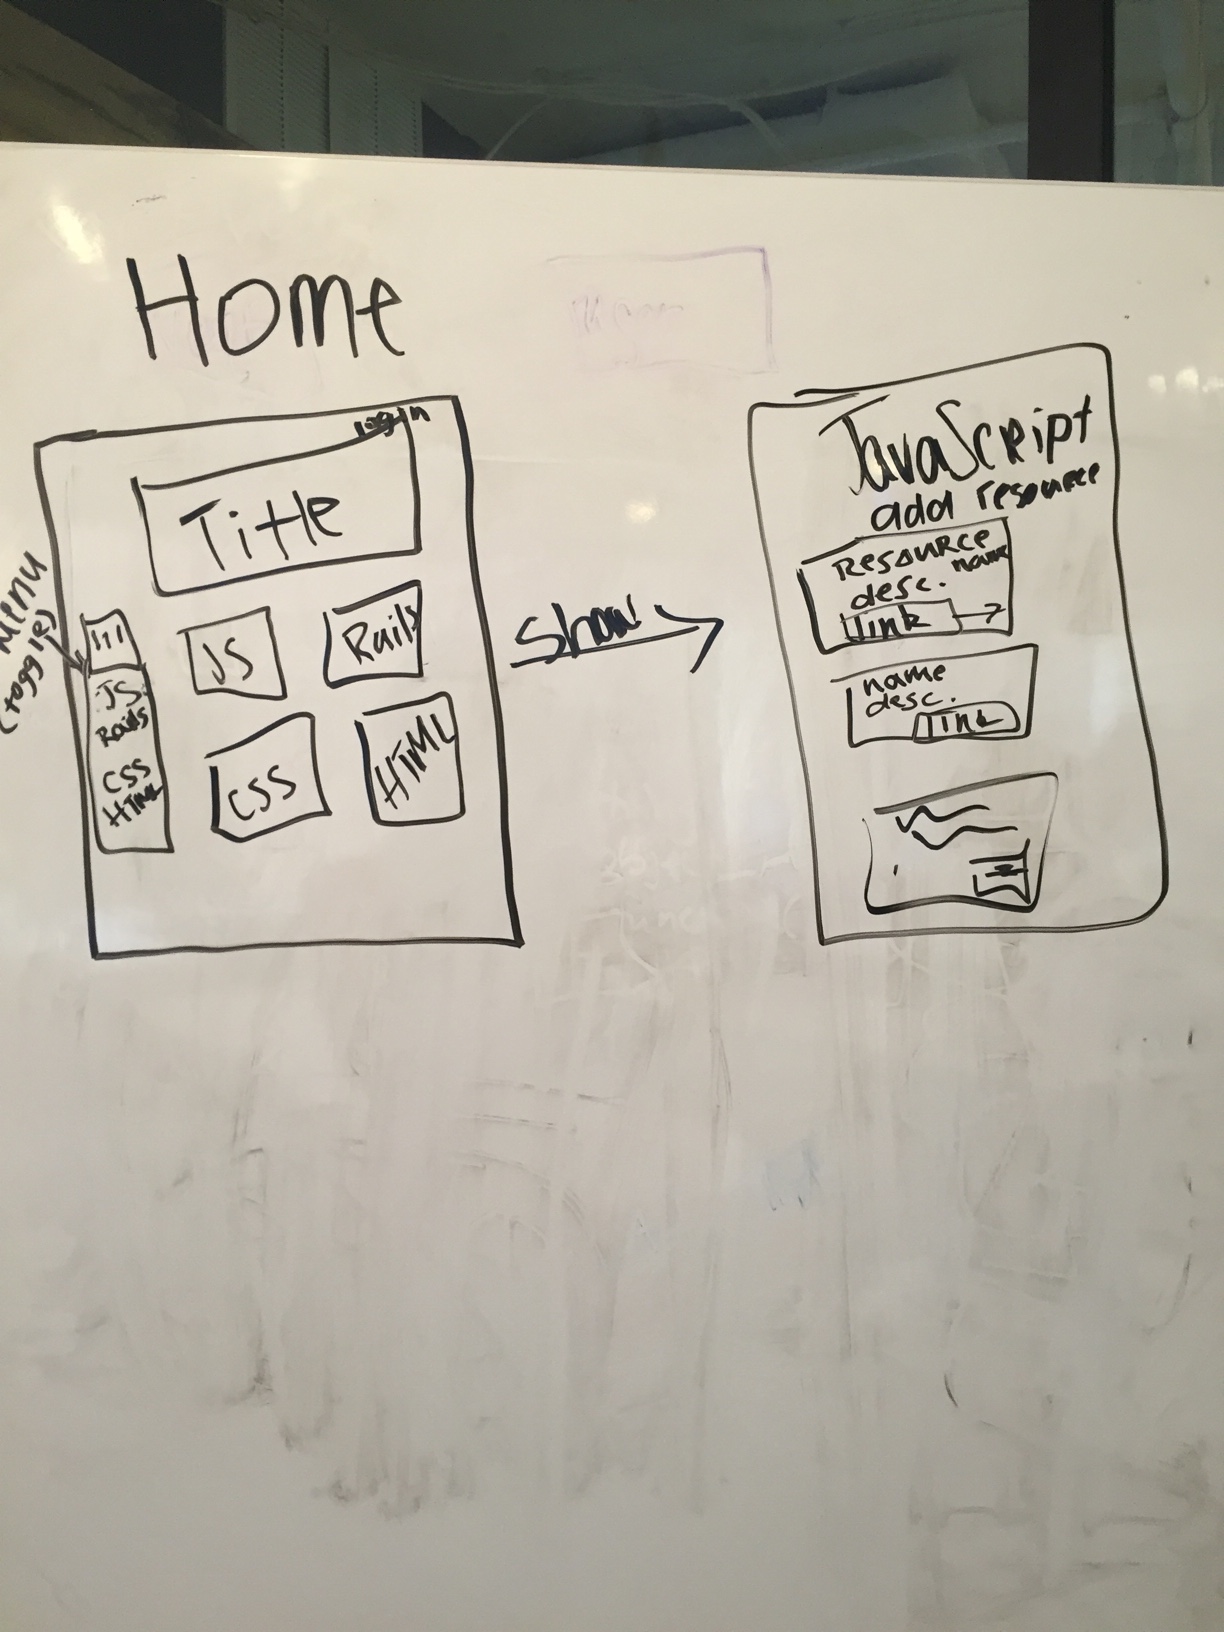 Home
Login
Title
Menu
(toggle)
JS
Rails
CSS
HTML
JS
Rails
CSS
HTML
Show
JavaScript
add resource
Resource
name
desc.
link
name
desc.
link